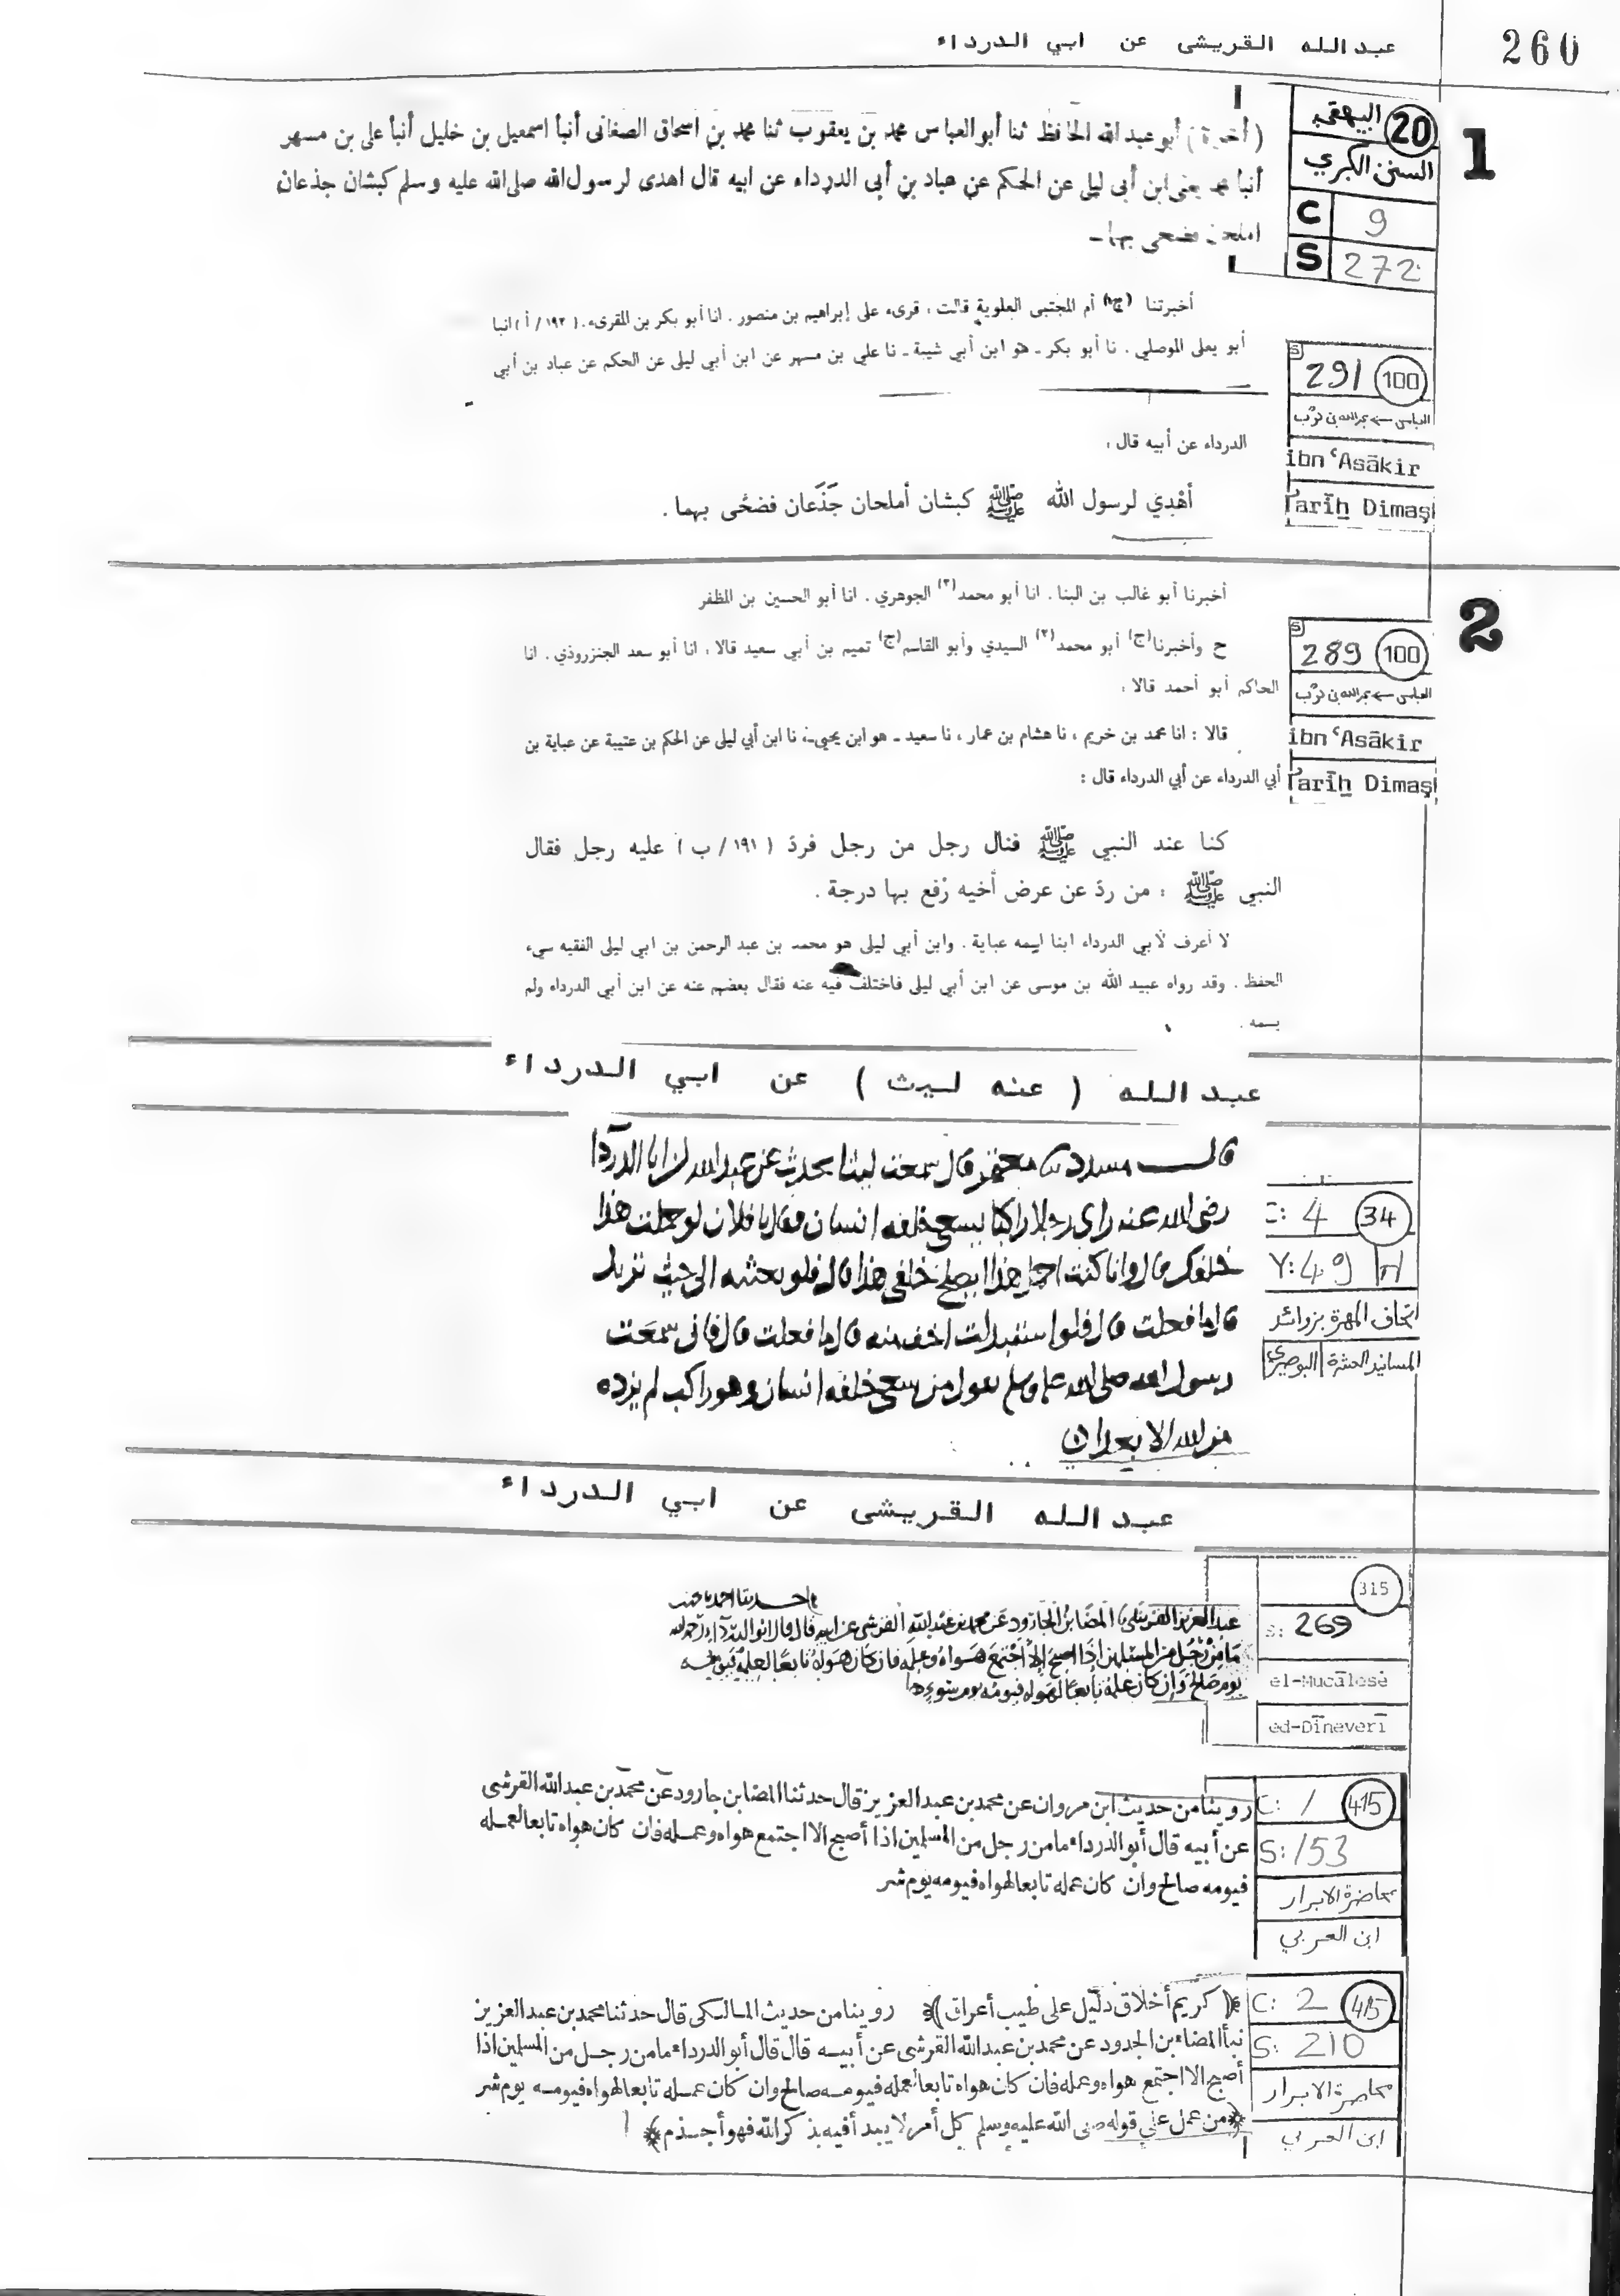 260
عبد الله القريشى عن ابي الدرداء
1
20 البيهقي
السنن الكبري
C 9
S 272
( أخبرنا ) أبو عبد الله الحافظ ثنا أبو العباس محمد بن يعقوب ثنا محمد بن اسحاق الصغانى أنبأ اسمعيل بن خليل أنبأ على بن مسهر
أنبأ محمد يعنى ابن أبى ليلى عن الحكم عن عباد بن أبى الدرداء عن ابيه قال اهدى لرسول الله صلى الله عليه وسلم كبشان جذعان
املحان فضحى بهما ـ
S 291 100
ibn ʿAsākir
Tarīḫ Dimaş
أخبرتنا (ج) أم المجتبى العلوية قالت : قرىء على إبراهيم بن منصور . انا أبو بكر بن المقرىء . ( ١٩٢ / أ ) انبا
أبو يعلى الموصلي . نا أبو بكر ـ هو ابن أبي شيبة ـ نا علي بن مسهر عن ابن أبي ليلى عن الحكم عن عباد بن أبي
الدرداء عن أبيه قال :
أهْدِيَ لرسول الله ﷺ كبشان أملحان جَذَعان فضحَّى بهما .
2
S 289 100
ibn ʿAsākir
Tarīḫ Dimaş
أخبرنا أبو غالب بن البنا . انا أبو محمد(٢) الجوهري . انا أبو الحسين بن المظفر
ح وأخبرنا(ج) أبو محمد(٢) السيدي وأبو القاسم(ج) تميم بن أبي سعيد قالا : انا أبو سعد الجنزروذي . انا
الحاكم أبو أحمد قالا :
قالا : انا محمد بن خريم ، نا هشام بن عمار ، نا سعيد ـ هو ابن يحيى ـ، نا ابن أبي ليلى عن الحكم بن عتيبة عن عباية بن
أبي الدرداء عن أبي الدرداء قال :
كنا عند النبي ﷺ فنال رجل من رجل فردّ ( ١٩١ / ب ) عليه رجل فقال
النبي ﷺ : من ردّ عن عرض أخيه رُفع بها درجة .
لا أعرف لأبي الدرداء ابنا اسمه عباية . وابن أبي ليلى هو محمد بن عبد الرحمن بن ابي ليلى الفقيه سيء
الحفظ . وقد رواه عبيد الله بن موسى عن ابن أبي ليلى فاختلف فيه عنه فقال بعضهم عنه عن ابن أبي الدرداء ولم
يسمه .
عبد الله ( عنه ليث ) عن ابي الدرداء
C: 4 34
Y: 49
اتحاف المهرة بزوائد
المسانيد العشرة البوصيري
قال مسدد ثنا معتمر قال سمعت ليثا يحدث عن عبد الله ان ابا الدردا
رضى الله عنه راى رجلا راكبا يسعى خلفه انسان فقال يا فلان لو حملت هذا
خلفك قال وانا كنت احمل هذا ايصلح خلفى هذا قال فلو بعثته الى حيث تريد
قال ما فعلت قال فلو استبدلت اخف منه قال ما فعلت قال فانى سمعت
رسول الله صلى الله عليه وسلم يقول من سعى خلفه انسان وهو راكب لم يزده
من الله الا بعدا
عبد الله القريشى عن ابي الدرداء
315
S: 269
el-Mucālese
ed-Dīneverī
عبد العزيز القرشى نا المضا بن الجارود عن محمد بن عبد الله القرشى عن ابيه قال قال ابو الدرداء رحمه الله
مَا مِنْ رَجُل من المسلمين اذا اصبح إلا اجتمع هَواهُ وعمله فان كان هواه تابعًا لعمله فيومه
يوم صالح وان كان عمله تابعا لهواه فيومه يوم سوء
C: 1 415
S: 153
محاضرة الابرار
ابن العربي
روينا من حديث ابن مروان عن محمد بن عبد العزيز قال حدثنا المضا بن جارود عن محمد بن عبد الله القرشى
عن أبيه قال أبو الدرداء ما من رجل من المسلمين اذا أصبح الا اجتمع هواه وعمله فان كان هواه تابعا لعمله
فيومه صالح وان كان عمله تابعا لهواه فيومه يوم شر
C: 2 415
S: 210
محاضرة الابرار
ابن العربي
﴿ كريم أخلاق دليل على طيب أعراق ﴾ روينا من حديث المالكى قال حدثنا محمد بن عبد العزيز
نبأ المضاء بن الجدود عن محمد بن عبد الله القرشى عن أبيه قال قال أبو الدرداء ما من رجل من المسلمين اذا
أصبح الا اجتمع هواه وعمله فان كان هواه تابعا لعمله فيومه صالح وان كان عمله تابعا لهواه فيومه يوم شر
﴿ من عمل على قوله صلى الله عليه وسلم كل أمر لا يبدأ فيه بذكر الله فهو أجذم ﴾